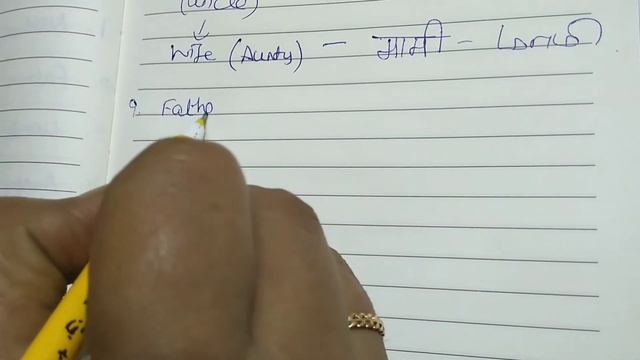 (uncle)
wife (Aunty) - मामी - (மாமி)
9. Fathe